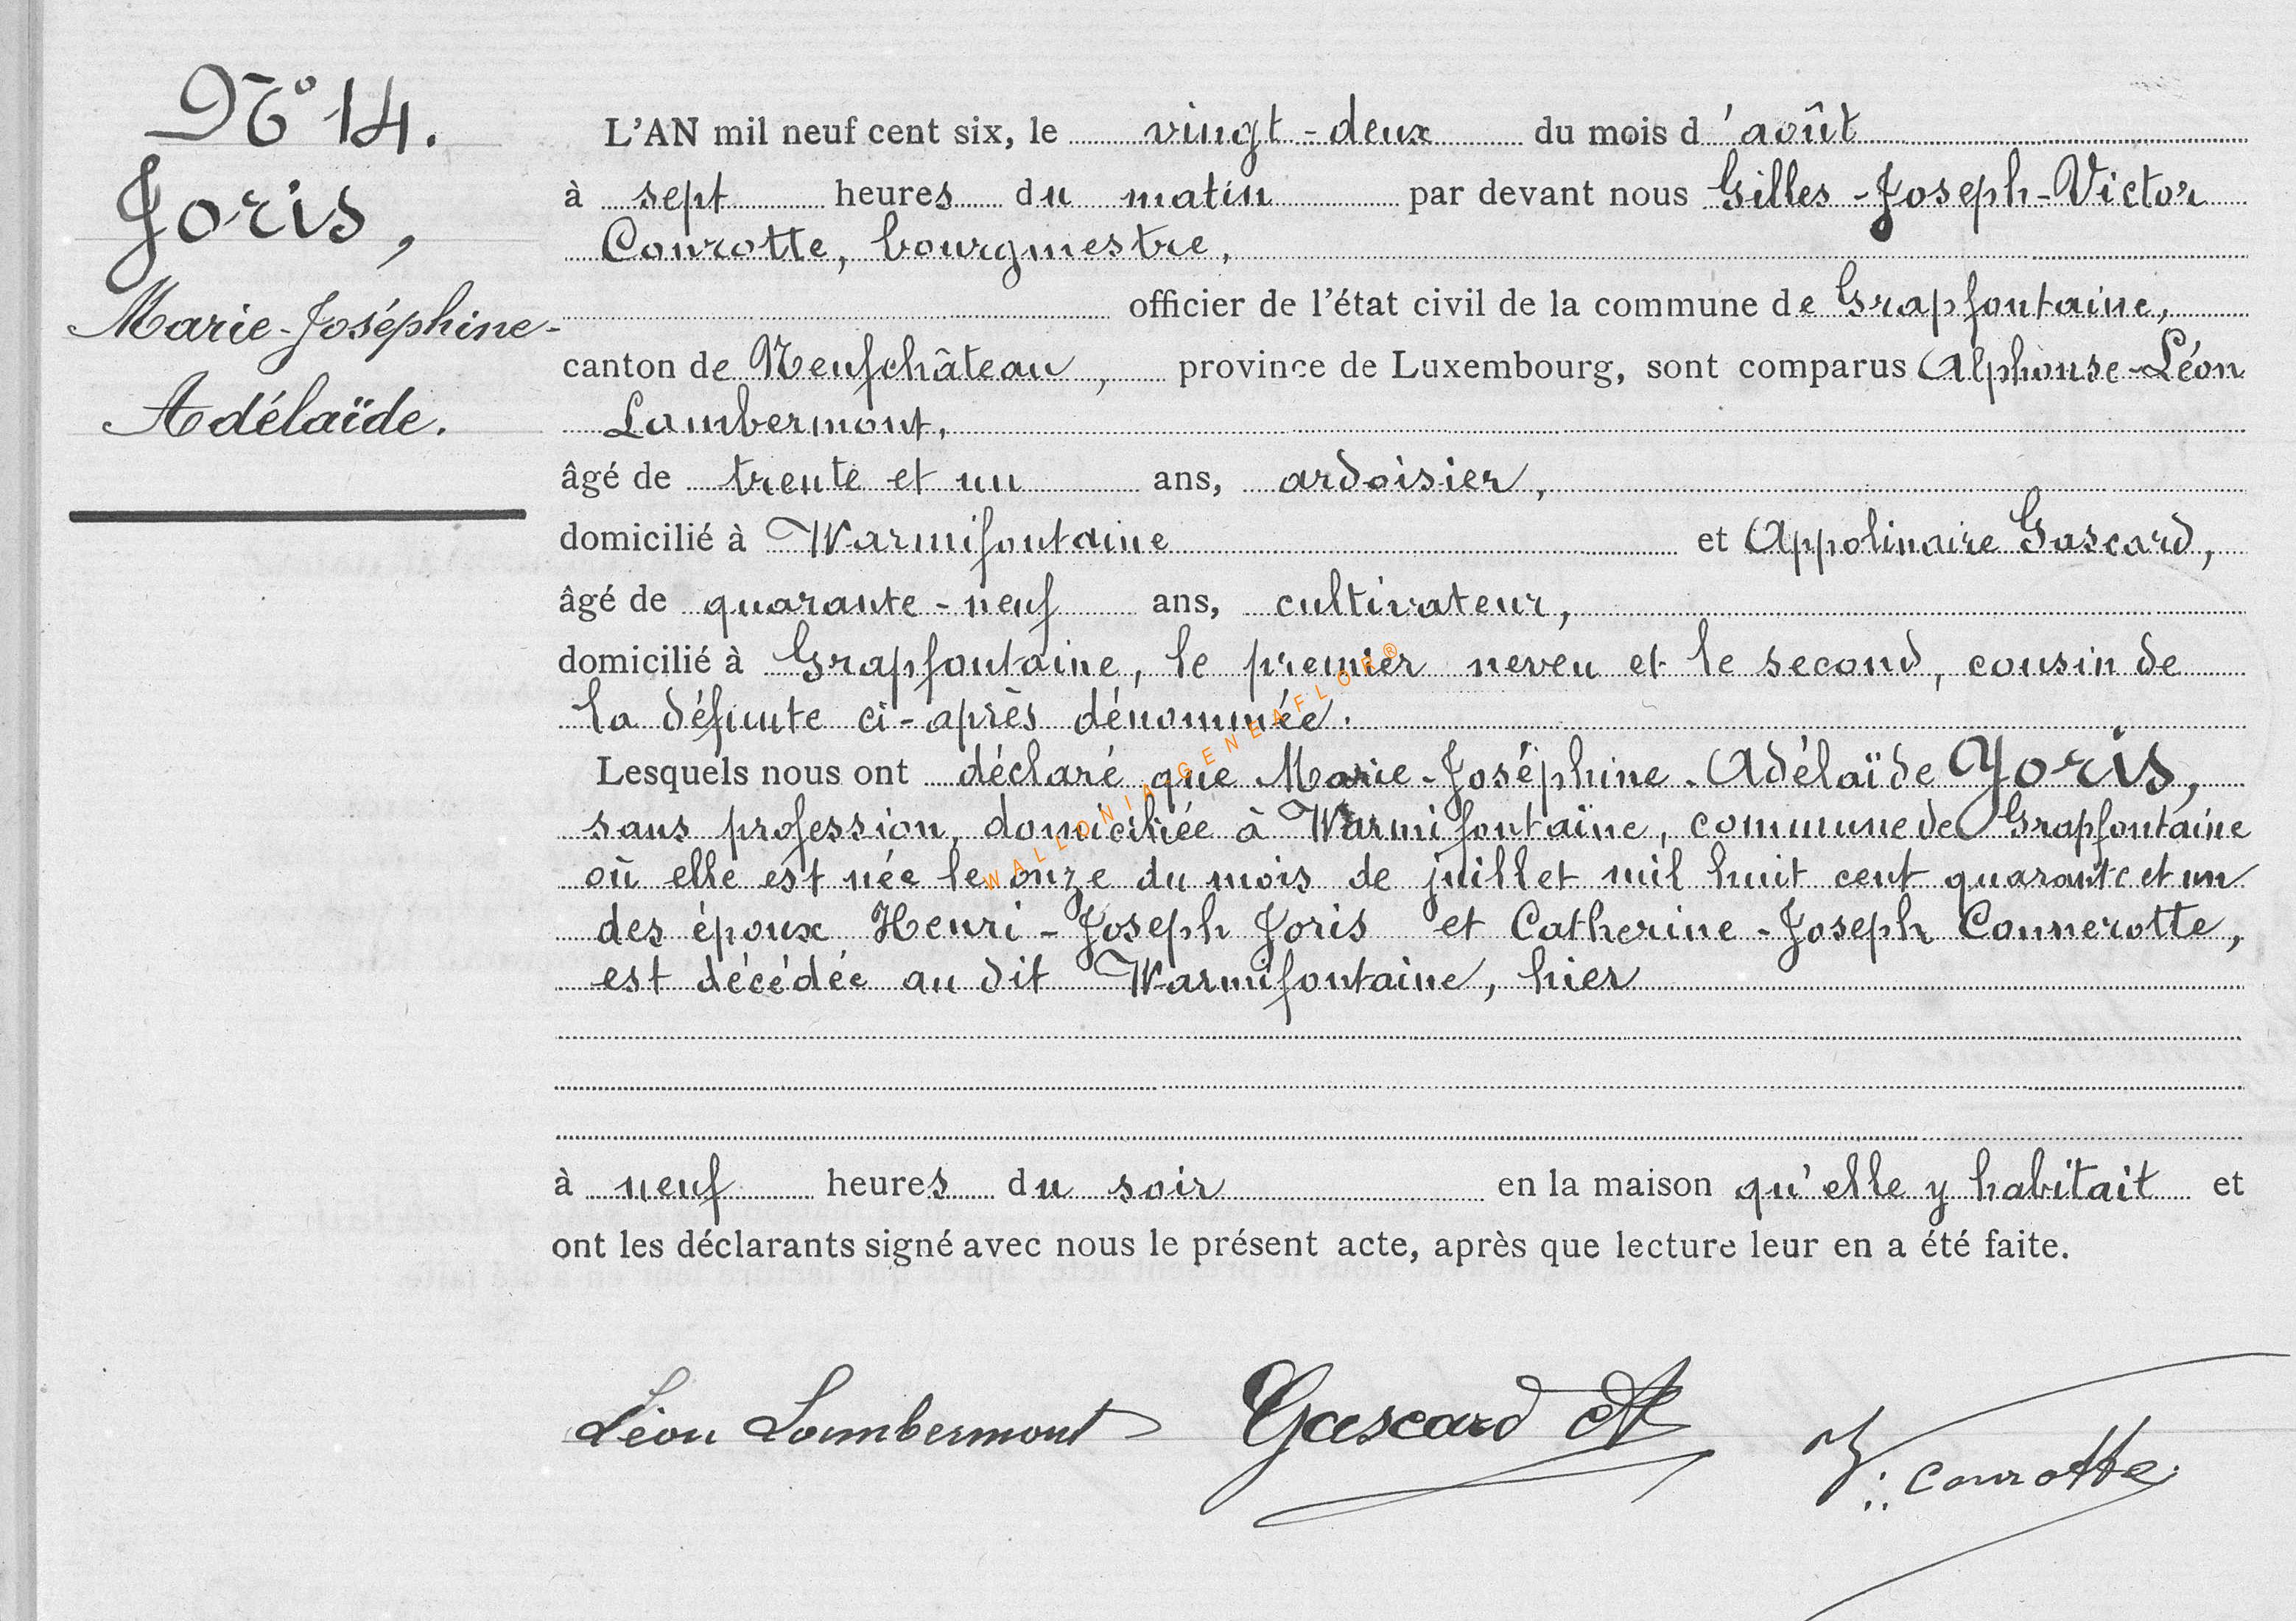 N° 14.
Joris,
Marie-Joséphine-
Adélaïde.
L'AN mil neuf cent six, le vingt-deux du mois d'août
à sept heures du matin par devant nous Gilles-Joseph-Victor
Conrotte, bourgmestre,
officier de l'état civil de la commune de Grapfontaine,
canton de Neufchâteau, province de Luxembourg, sont comparus Alphonse-Léon
Lambermont,
âgé de trente et un ans, ardoisier,
domicilié à Warmifontaine et Appolinaire Gascard,
âgé de quarante-neuf ans, cultivateur,
domicilié à Grapfontaine, le premier neveu et le second, cousin de
la défunte ci-après dénommée.
Lesquels nous ont déclaré que Marie-Joséphine-Adélaïde Joris,
sans profession, domiciliée à Warmifontaine, commune de Grapfontaine
où elle est née le onze du mois de juillet mil huit cent quarante et un
des époux Henri-Joseph Joris et Catherine-Joseph Connerotte,
est décédée au dit Warmifontaine, hier
à neuf heures du soir en la maison qu'elle y habitait et
ont les déclarants signé avec nous le présent acte, après que lecture leur en a été faite.
Léon Lambermont Gascard A V. Conrotte
WALLONIA-GENEAFLOR®